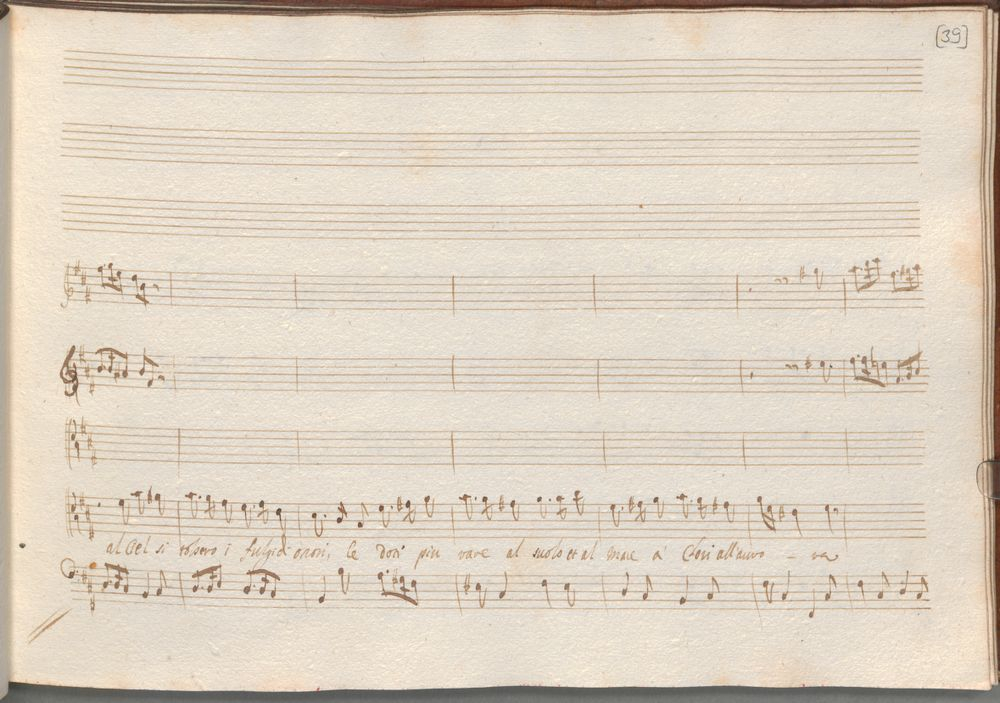 [39]
al Ciel si tolsero i fulgid orori, le doti più rare al suolo et al mare à Clori all'auro - ra